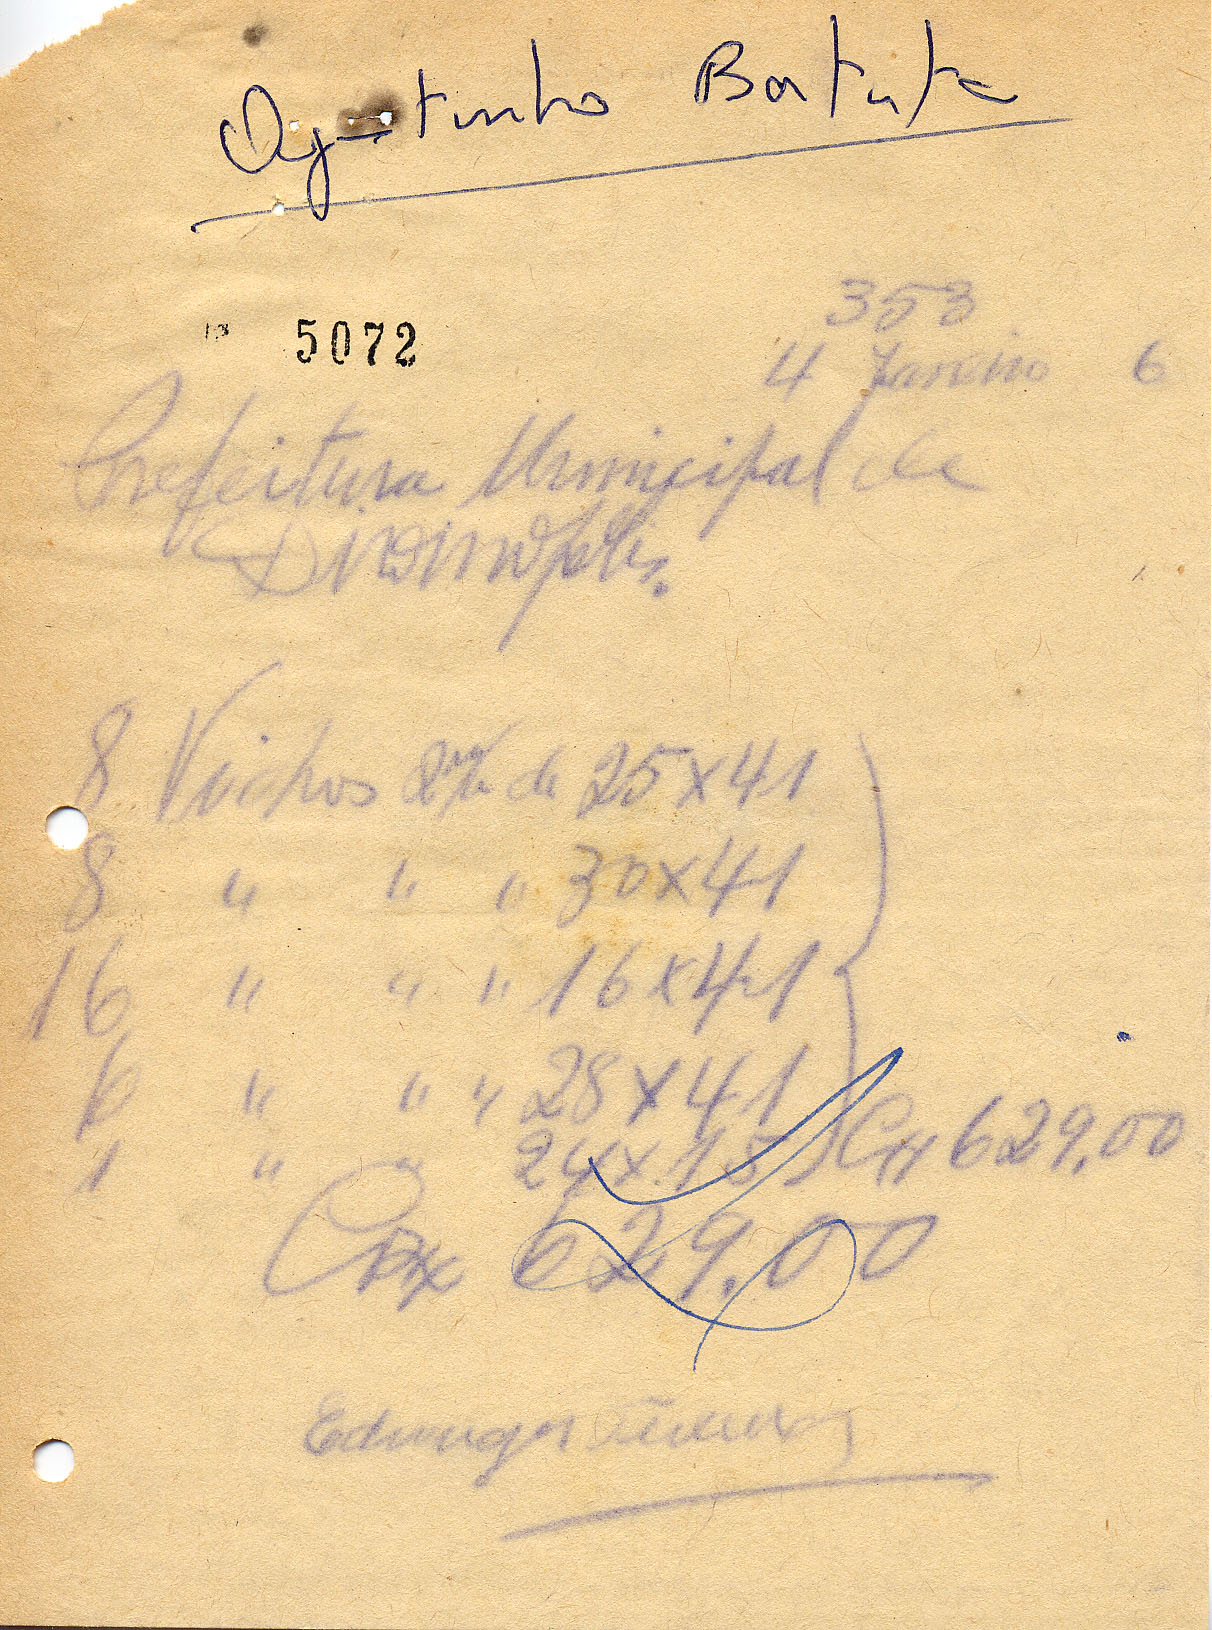 Agostinho Batista
Nº 5072
353
4 Janeiro 6
Prefeitura Municipal de
Divinópolis.
8 Vidros de 25x41
8 " " " 30x41
16 " " " 16x41
6 " " " 28x41
1 " " 24x15 Cr 629,00
629,00